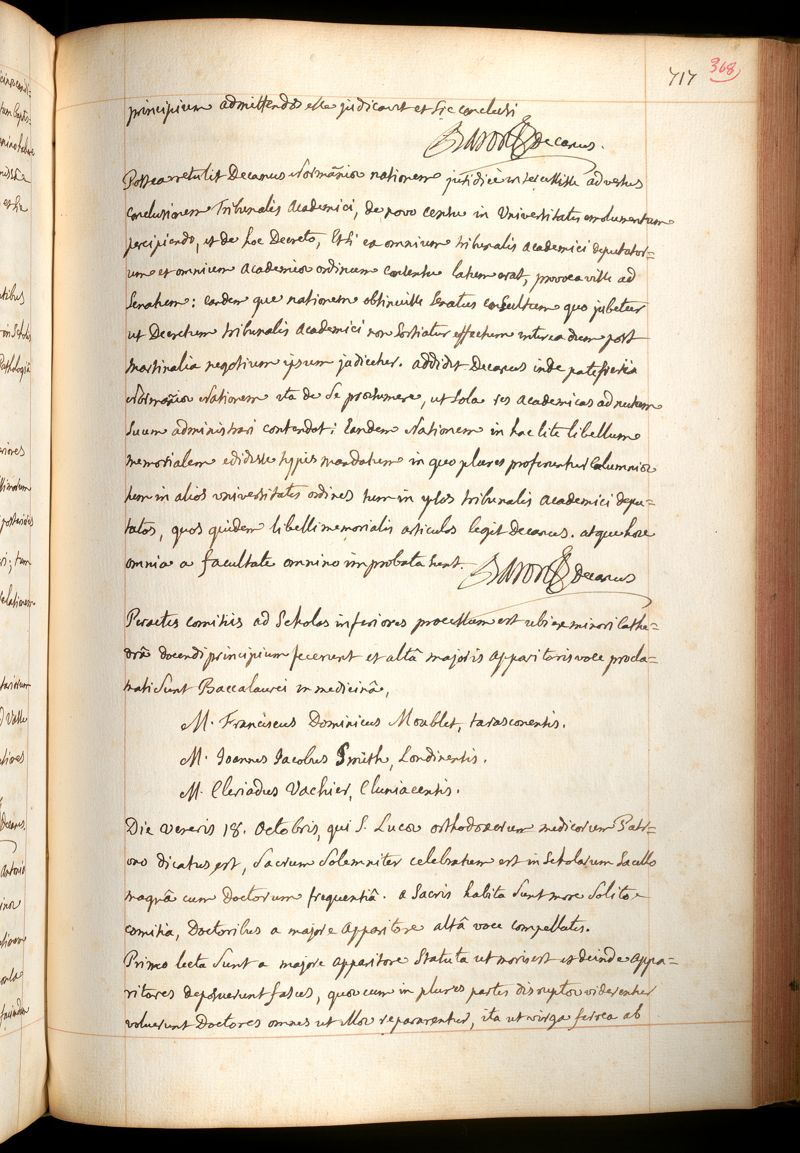 717 368
principium admittendos esse judicavit et sic conclusi
Baron decanus.
Postea retulit Decanus Normaniæ nationem juridicè intercessisse adversus
conclusionem Tribunalis Academici, de novo censu in Universitatis emolumentum
percipiendo, et de hoc Decreto, Etsi ex omnium tribunalis academici deputator=
um et omnium Academiæ ordinum consensu latum erat, provocavisse ad
Senatum: eandem que nationem obtinuisse Senatus consultum quo jubetur
ut Decretum tribunalis Academici non sortiatur effectum interea dum post
martinalia negotium ipsum judicetur. addidit Decanus inde patefieri
Normaniæ Nationem ita de se præsumere, ut sola res academicas ad nutum
suum administrari contendat; Eandem Nationem in hac lite libellum
memorialem edidisse typis mandatum in quo plures proferuntur calumniæ
tum in alios universitatis ordines tum in ipsos tribunalis academici depu=
tatos, quos quidem libelli memorialis articulos legit decanus. atque hæc
omnia a facultate omnino improbata sunt. Baron Decanus
Peractis comitiis ad Scholas inferiores processum est ubi ex minori Cathe=
drâ docendi principium fecerunt et altâ majoris apparitoris voce procla=
mati sunt Baccalaurei in medicinâ,
M. Franciscus Dominicus Moublet, tarasconensis.
M. Joannes Jacobus Smith, Londinensis.
M. Cleriadus Vachier, Cluniacensis.
Die veneris 18. Octobris, qui S. Lucæ orthodoxorum medicorum Patr=
ono dicatus est, sacrum solemniter celebratum est in Scholarum Sacello
magnâ cum Doctorum frequentiâ. a Sacris habita sunt more solito
comitia, Doctoribus a majore apparitore altâ voce compellatis.
Primo lecta sunt a majore apparitore Statuta ut moris est et deinde appa=
ritores deposuerunt fasces, quos cum in plures partes disruptos viderentur
voluerunt Doctores omnes ut illos repararentur, ita ut virga ferrea ab